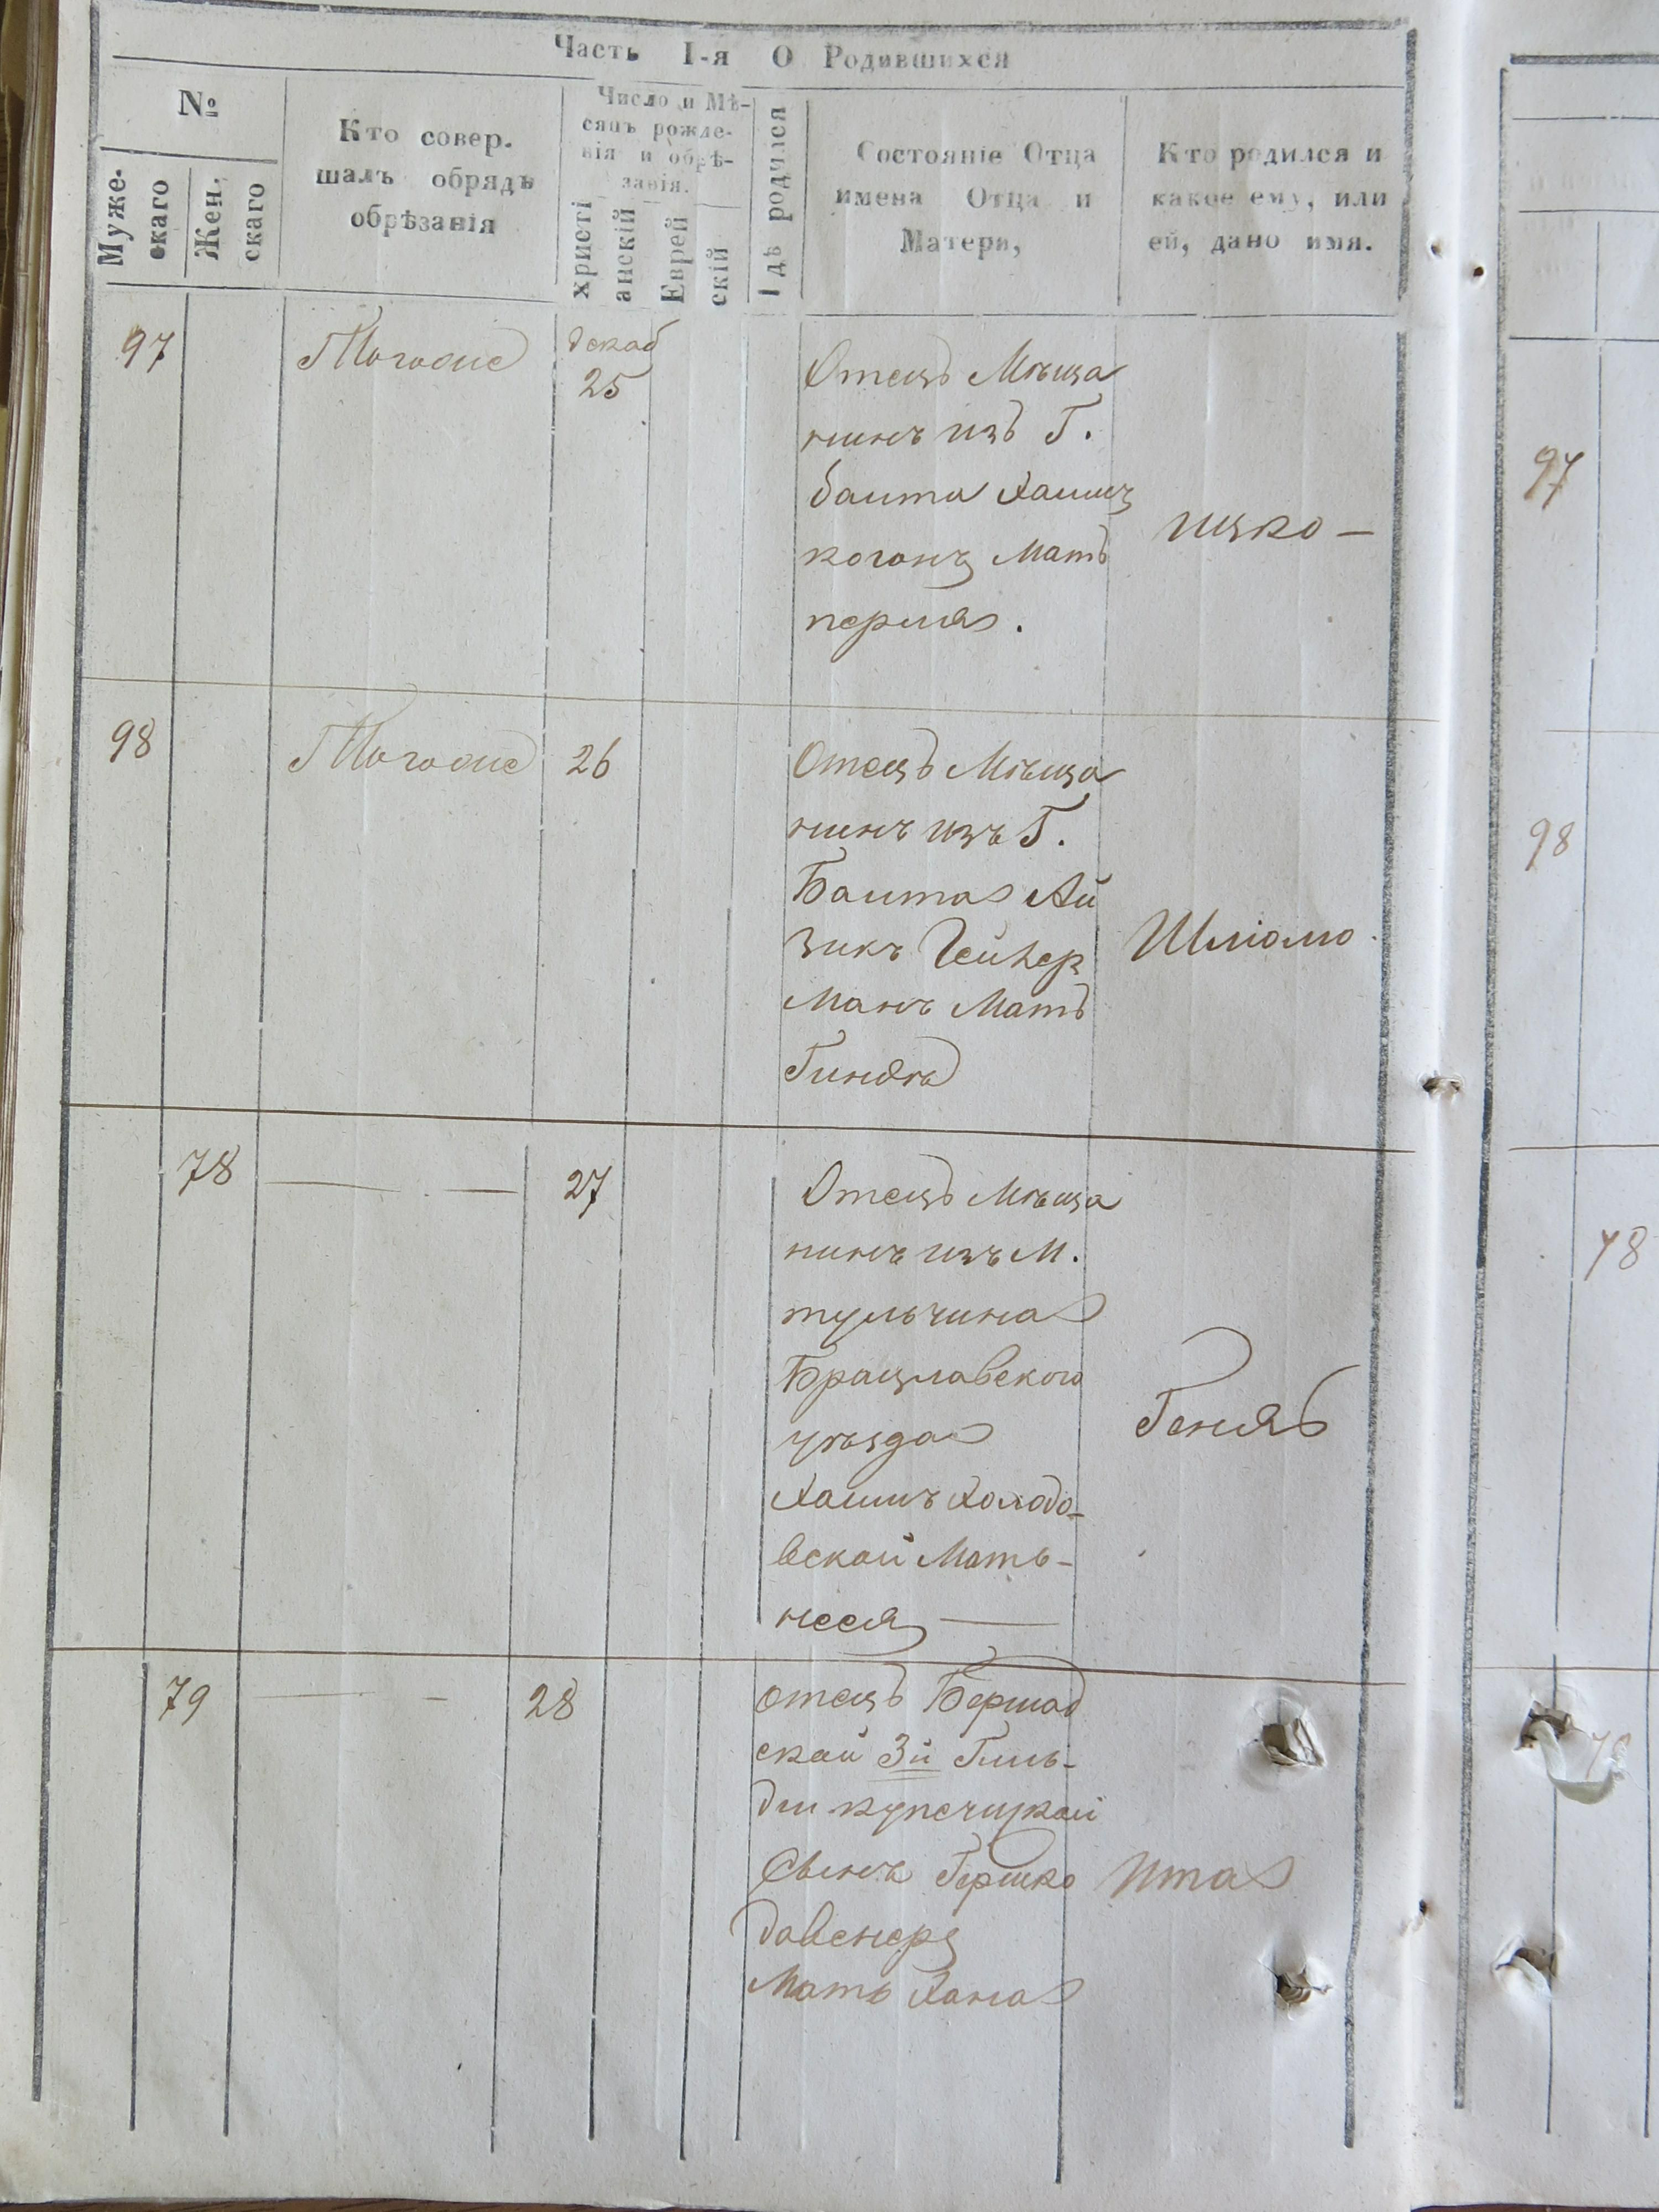 Часть I-я О Родившихся
№
Муже-
скаго
Жен.
скаго
Кто совер.
шалъ обрядъ
обрѣзанія
Число и Мѣ-
сяцъ рожде-
нія и обрѣ-
занія.
христі
анскій
Еврей
скій
Гдѣ родился
Состояніе Отца
имена Отца и
Матери,
Кто родился и
какое ему, или
ей, дано имя.
97
Тогоже
декаб
25
Отецъ Мѣща
нинъ изъ Г.
балта Хаимъ
коганъ Мать
перля.
ицко —
97
98
Тогоже
26
Отецъ Мѣща
нинъ изъ Г.
Балта Ай
зикъ
манъ Мать
Гиндя
Шліомо
98
78
27
Отецъ Мѣща
нинъ изъ М.
тульчина
Брацлавского
уѣзда
Хаимъ Холодо-
вской Мать-
неся —
Геня
78
79
28
отецъ Бершад
ской 3й Гиль-
діи купечицкой
Сынъ Гершко
Мать Хана
Ита